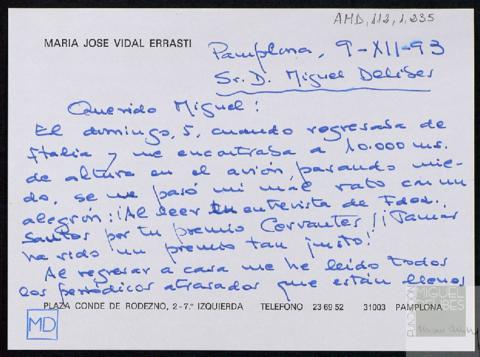 AMD, 112, 1, 235
MARIA JOSE VIDAL ERRASTI
Pamplona, 9-XII-93
Sr. D. Miguel Delibes
Querido Miguel:
El domingo, 5, cuando regresaba de
Italia y me encontraba a 10.000 ms.
de altura en el avión, pasando mie-
do, se me pasó mi mal rato con un
alegrón: ¡Al leer tu entrevista de Fdez.
Santos por tu premio Cervantes! ¡Jamás
ha sido un premio tan justo!
Al regresar a casa me he leído todos
los periódicos atrasados que están llenos
PLAZA CONDE DE RODEZNO, 2-7.º IZQUIERDA TELEFONO 23 69 52 31003 PAMPLONA
MD
FUNDACIÓN
MIGUEL
DELIBES